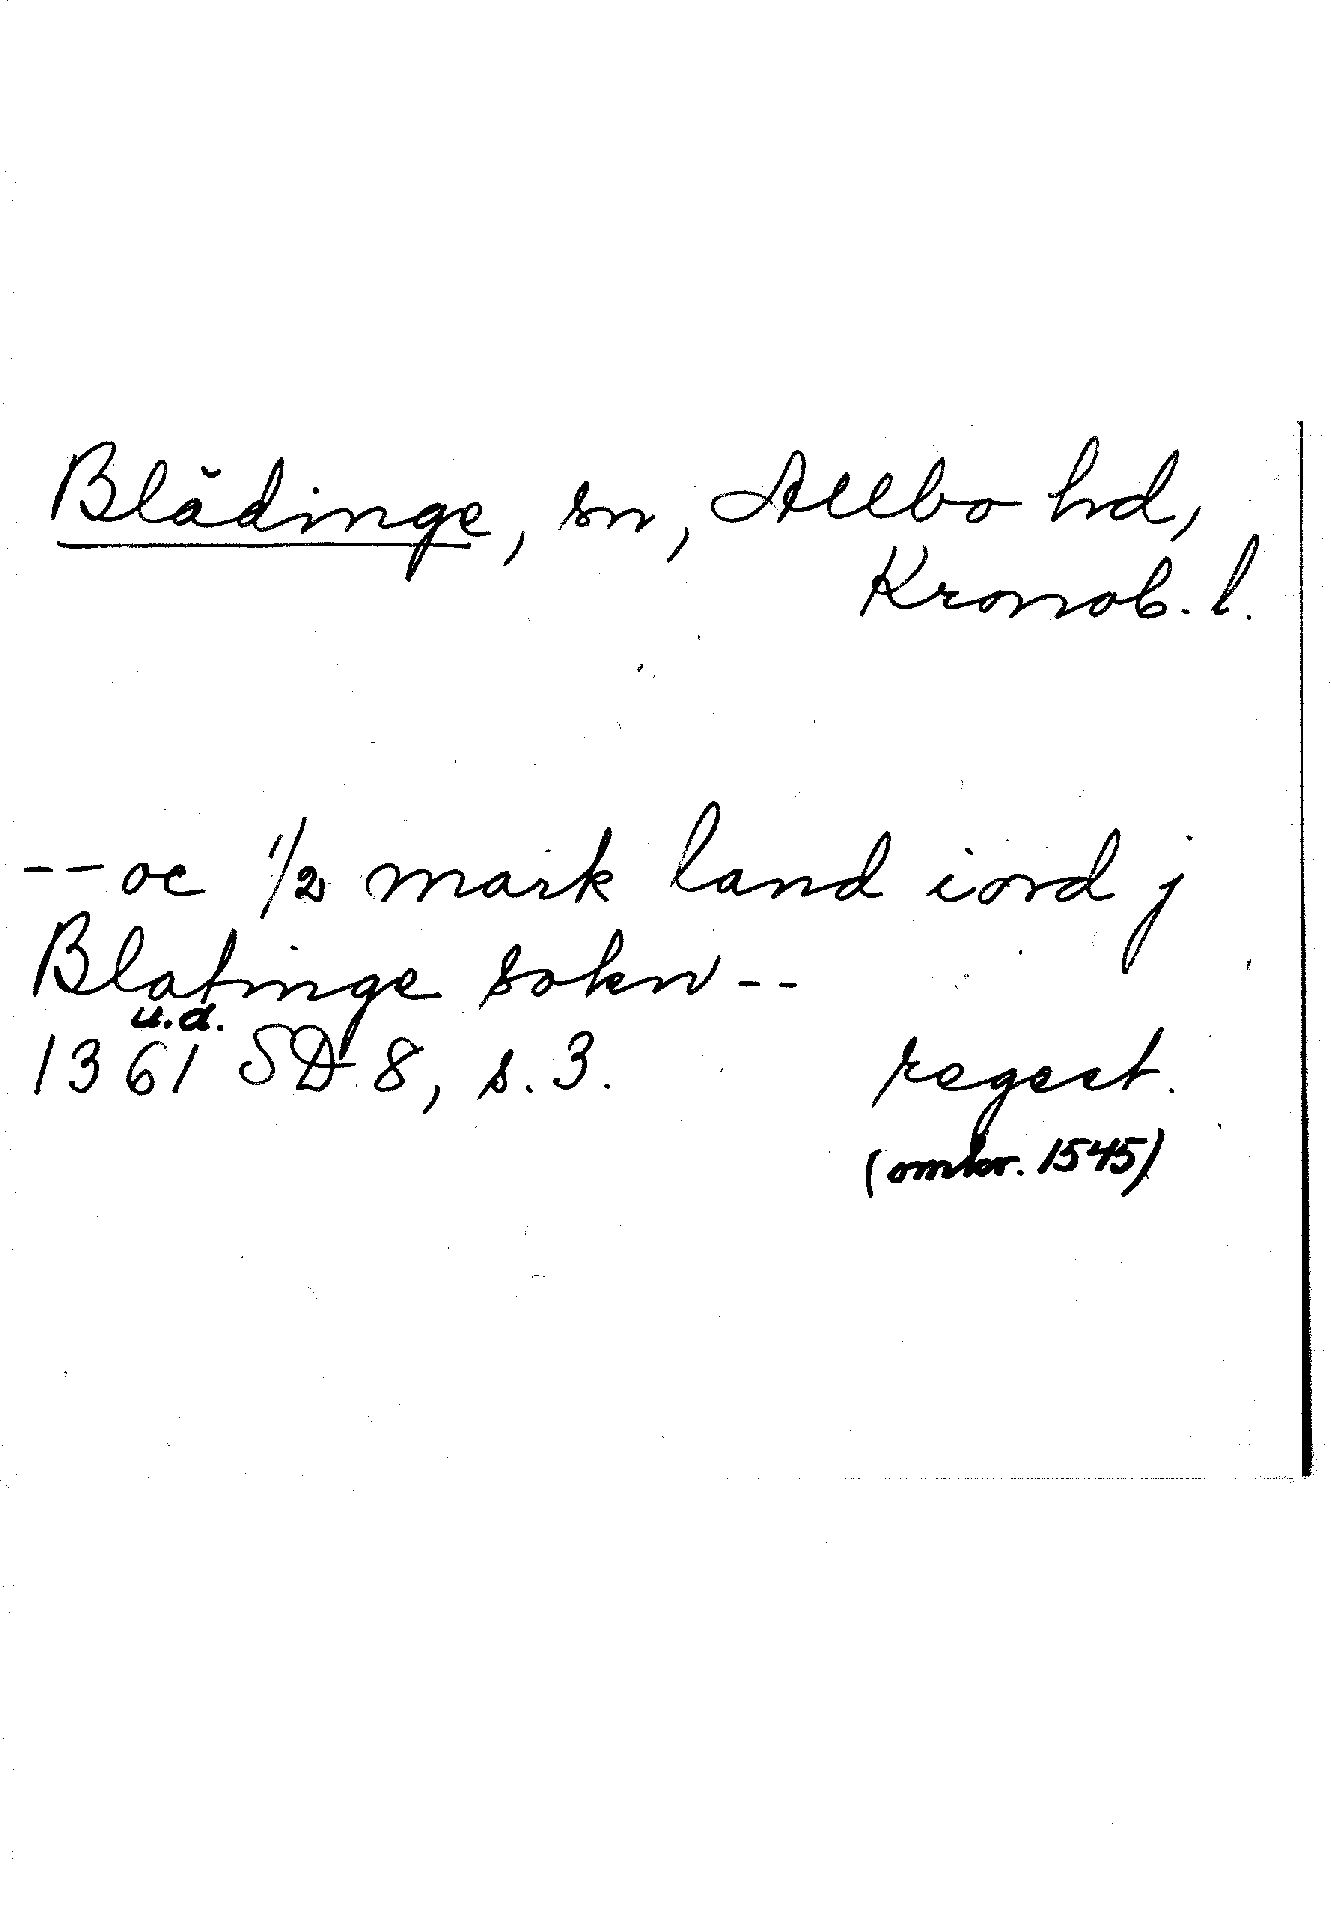 Blädinge, sn, Allbo hd,
Kronob. l.
-- oc 1/2 mark land iord j
Blatinge sokn --
u.d.
1361 SD 8, s. 3. regest.
(omkr. 1545)